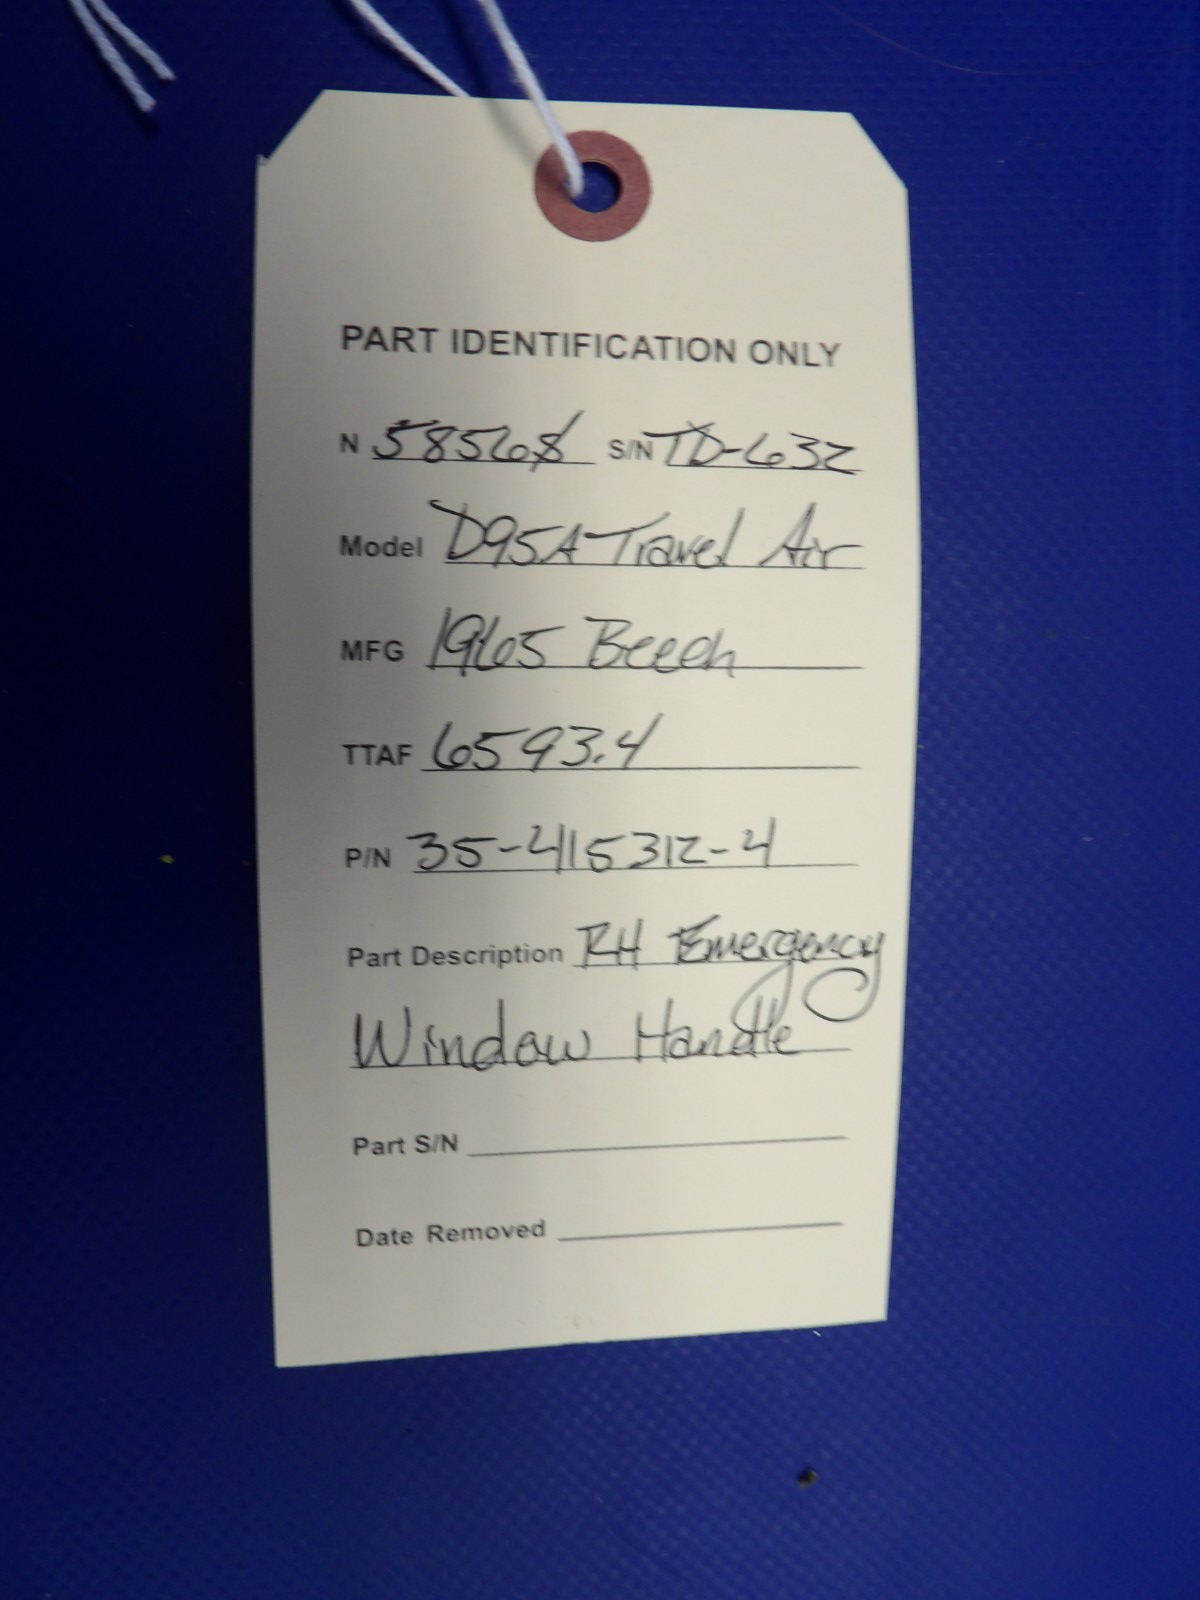 PART IDENTIFICATION ONLY
N 58568 S/N TD-632
Model D95A Travel Air
MFG 1965 Beech
TTAF 6593.4
P/N 35-415312-4
Part Description RH Emergency
Window Handle
Part S/N
Date Removed